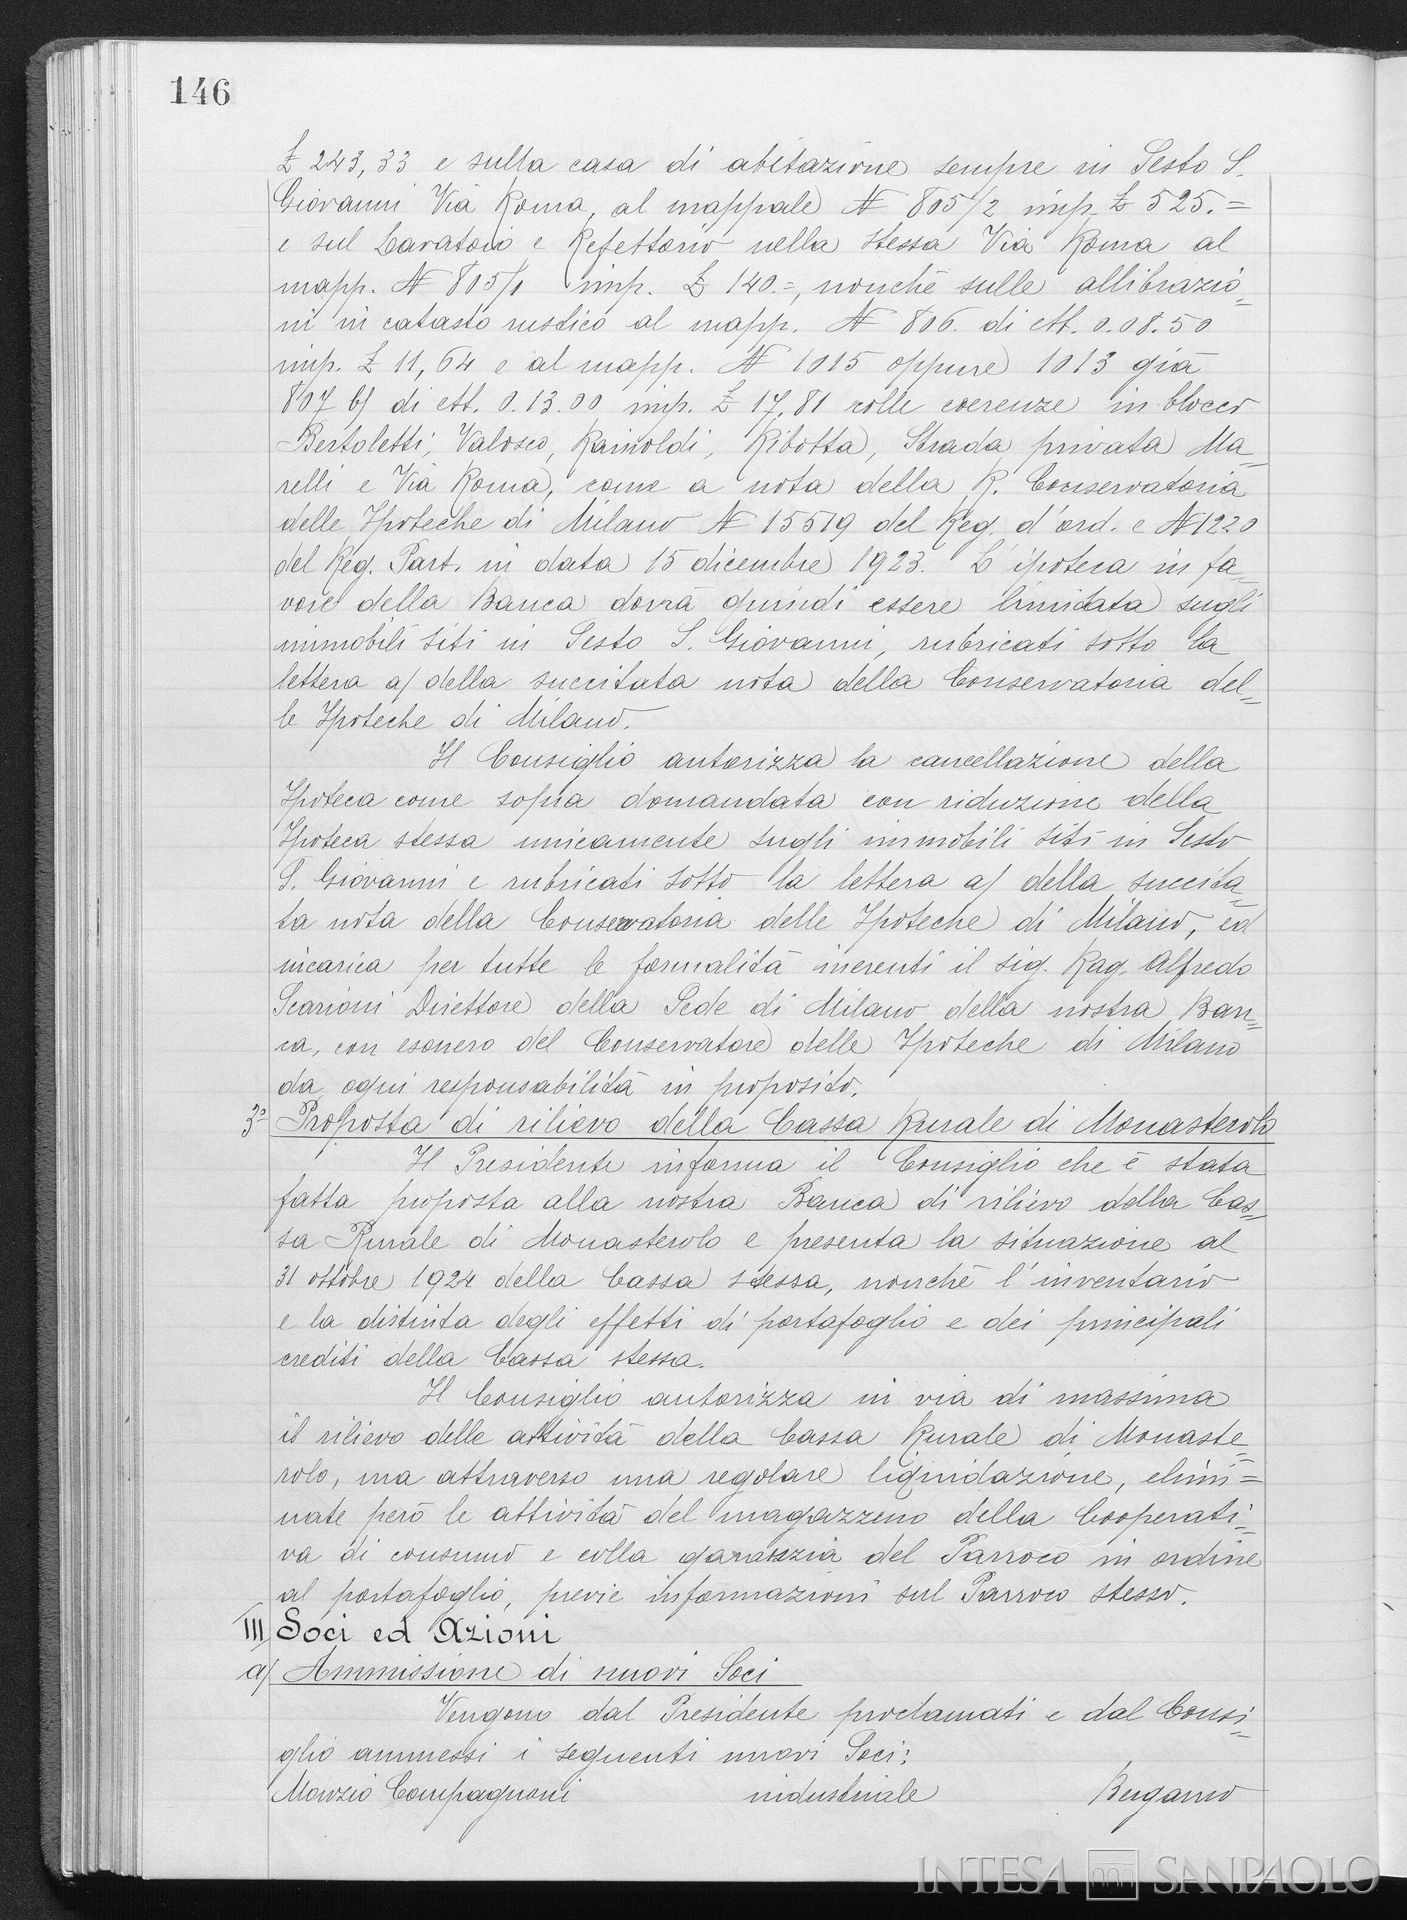 146
£ 243,33 e sulla casa di abitazione sempre in Sesto S.
Giovanni Via Roma, al mappale N 805/2 imp. £ 525.=
e sul Lavatoio e Refettorio nella stessa Via Roma al
mapp. N 805/1 imp. £ 140.=, nonchè sulle allibrazio=
ni in catasto rustico al mapp. N 806. di ett. 0.08.50
imp. £ 11,64 e al mapp. N 1015 oppure 1013 già
807 b/ di ett. 0.13.00 imp. £ 17,81 colle coerenze in blocco
Bertoletti, Valosco, Rainoldi, Ribotta, Strada privata Ma=
relli e Via Roma, come a nota della R. Conservatoria
delle Ipoteche di Milano N 15519 del Reg. d'ord. e N 1220
del Reg. Part. in data 15 dicembre 1923. L'ipoteca in fa=
vore della Banca dovrà quindi essere limitata sugli
immobili siti in Sesto S. Giovanni, rubricati sotto la
lettera a/ della succitata nota della Conservatoria del=
le Ipoteche di Milano.
Il Consiglio autorizza la cancellazione della
Ipoteca come sopra domandata con riduzione della
Ipoteca stessa unicamente sugli immobili siti in Sesto
S. Giovanni e rubricati sotto la lettera a/ della succita=
ta nota della Conservatoria delle Ipoteche di Milano, ed
incarica per tutte le formalità inerenti il sig. Rag. Alfredo
Scarioni Direttore della Sede di Milano della nostra Ban=
ca, con esonero del Conservatore delle Ipoteche di Milano
da ogni responsabilità in proposito.
3° Proposta di rilievo della Cassa Rurale di Monasterolo
Il Presidente informa il Consiglio che è stata
fatta proposta alla nostra Banca di rilievo della Cas=
sa Rurale di Monasterolo e presenta la situazione al
31 ottobre 1924 della Cassa stessa, nonchè l'inventario
e la distinta degli effetti di portafoglio e dei principali
crediti della Cassa stessa.
Il Consiglio autorizza in via di massima
il rilievo delle attività della Cassa Rurale di Monaste=
rolo, ma attraverso una regolare liquidazione, elimi=
nate però le attività del magazzeno della Cooperati=
va di consumo e colla garanzia del Parroco in ordine
al portafoglio, previe informazioni sul Parroco stesso.
III Soci ed Azioni
a/ Ammissione di nuovi Soci
Vengono dal Presidente proclamati e dal Consi=
glio ammessi i seguenti nuovi Soci:
Maurzio Compagnoni industriale Bergamo
INTESA SANPAOLO